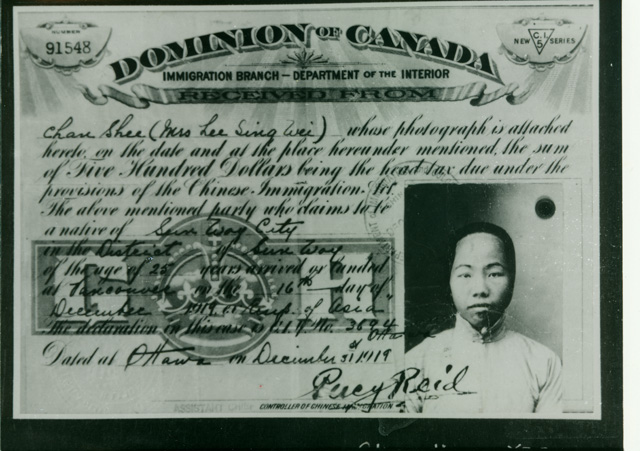 NUMBER
91548
NEW C.I. 5 SERIES
DOMINION OF CANADA
IMMIGRATION BRANCH — DEPARTMENT OF THE INTERIOR
RECEIVED FROM
Chan Shee (Mrs Lee Sing Wei) whose photograph is attached
hereto, on the date and at the place hereunder mentioned, the sum
of Five Hundred Dollars being the head tax due under the
provisions of the Chinese Immigration Act
The above mentioned party who claims to be
a native of Sun Woy City
in the District of Sun Woy
of the age of 25 years arrived or landed
at Vancouver on the 16th day of
December 1919, ex Emp. of Asia"
The declaration in this case is C.I.4. No. 3694
Ottawa
Dated at Ottawa on December 31st 1919
Percy Reid
CONTROLLER OF CHINESE IMMIGRATION